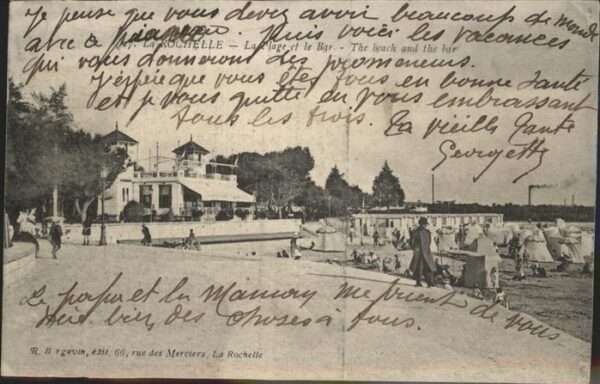 Je pense que vous devez avoir beaucoup de monde
avec ce beau temps. Puis voici les vacances
LA ROCHELLE - La Plage et le Bar - The beach and the bar
qui vous donneront des promeneurs.
J'espère que vous êtes tous en bonne santé
et je vous quitte en vous embrassant
tous les trois. Ta vieille Tante
Georgette
Le papa et la Maman me prient de vous
dire bien des choses à tous.
R. Bergevin, édit. 66, rue des Merciers, La Rochelle